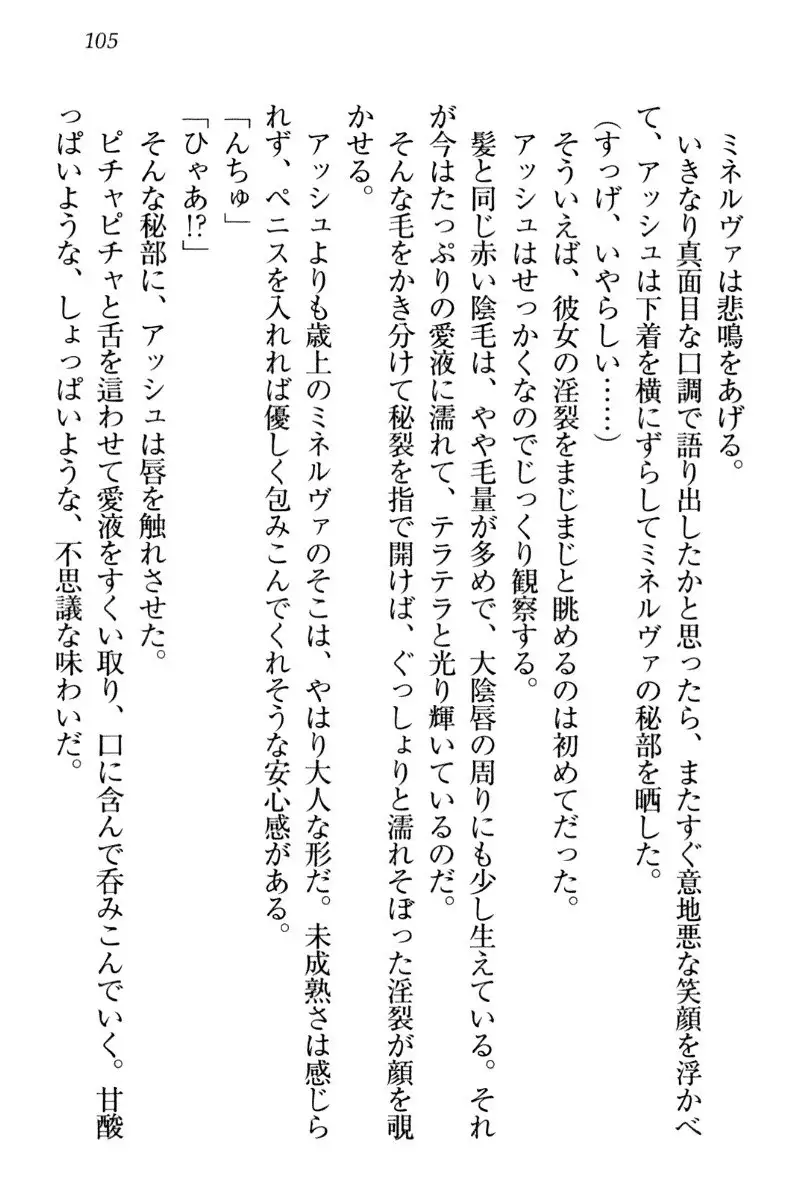 105
ミネルヴァは悲鳴をあげる。
いきなり真面目な口調で語り出したかと思ったら、またすぐ意地悪な笑顔を浮かべ
て、アッシュは下着を横にずらしてミネルヴァの秘部を晒した。
（すっげ、いやらしい……）
そういえば、彼女の淫裂をまじまじと眺めるのは初めてだった。
アッシュはせっかくなのでじっくり観察する。
髪と同じ赤い陰毛は、やや毛量が多めで、大陰唇の周りにも少し生えている。それ
が今はたっぷりの愛液に濡れて、テラテラと光り輝いているのだ。
そんな毛をかき分けて秘裂を指で開けば、ぐっしょりと濡れそぼった淫裂が顔を覗
かせる。
アッシュよりも歳上のミネルヴァのそこは、やはり大人な形だ。未成熟さは感じら
れず、ペニスを入れれば優しく包みこんでくれそうな安心感がある。
「んちゅ」
「ひゃあ!?」
そんな秘部に、アッシュは唇を触れさせた。
ピチャピチャと舌を這わせて愛液をすくい取り、口に含んで呑みこんでいく。甘酸
っぱいような、しょっぱいような、不思議な味わいだ。